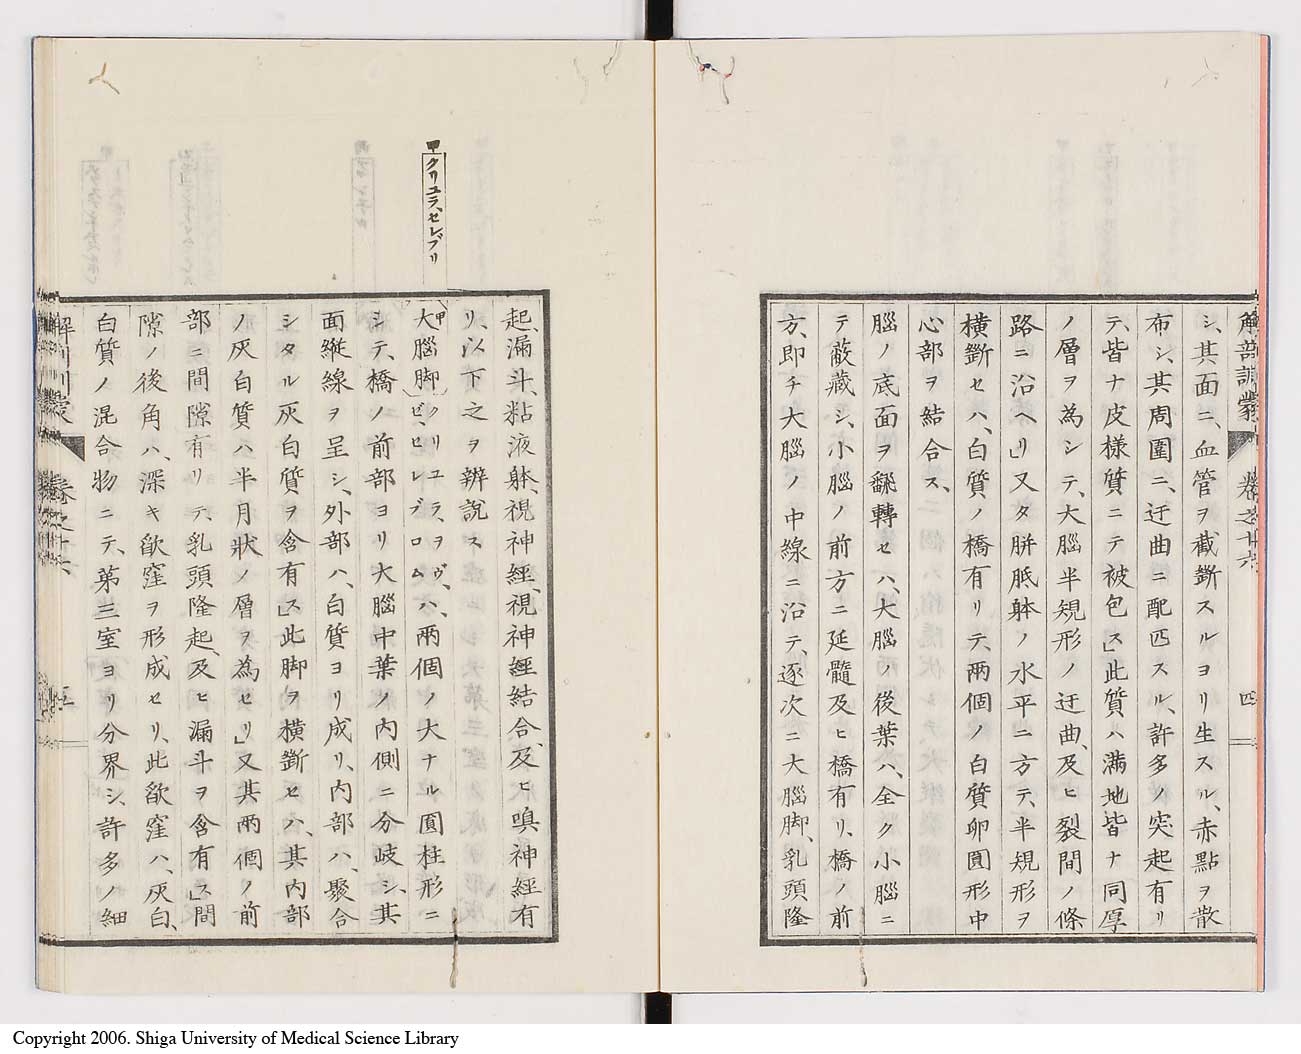 解剖訓蒙 卷之廿六 四
シ、其面ニ、血管ヲ截斷スルヨリ生スル、赤點ヲ散
布シ、其周圍ニ、迂曲ニ配匹スル、許多ノ突起有リ
テ、皆ナ皮樣質ニテ被包ス」此質ハ滿地皆ナ同厚
ノ層ヲ為シテ、大腦半規形ノ迂曲、及ヒ裂間ノ條
路ニ沿ヘリ」又タ胼胝躰ノ水平ニ方テ、半規形ヲ
橫斷セハ、白質ノ橋有リテ、兩個ノ白質卵圓形中
心部ヲ結合ス、
腦ノ底面ヲ飜轉セハ、大腦ノ後葉ハ、全ク小腦ニ
テ蔽藏シ、小腦ノ前方ニ延髓及ヒ橋有リ、橋ノ前
方、即チ大腦ノ中線ニ沿テ、逐次ニ大腦脚、乳頭隆
起、漏斗、粘液躰、視神經、視神經結合、及ヒ嗅神經有
リ、以下之ヲ辨説ス
甲 クリユラ、セレブリ
大腦脚(甲)クリユラ、ヲヴ、ゼ、セレブロムハ、兩個ノ大ナル圓柱形ニ
シテ、橋ノ前部ヨリ大腦中葉ノ內側ニ分岐シ、其
面縱線ヲ呈シ、外部ハ、白質ヨリ成リ、內部ハ、聚合
シタル灰白質ヲ含有ス」此脚ヲ橫斷セハ、其內部
ノ灰白質ハ半月狀ノ層ヲ為セリ」又其兩個ノ前
部ニ間隙有リテ、乳頭隆起、及ヒ漏斗ヲ含有ス」間
隙ノ後角ハ、深キ欿窪ヲ形成セリ、此欿窪ハ、灰白、
白質ノ混合物ニテ、第三室ヨリ分界シ、許多ノ細
解剖訓蒙 卷之廿六 五